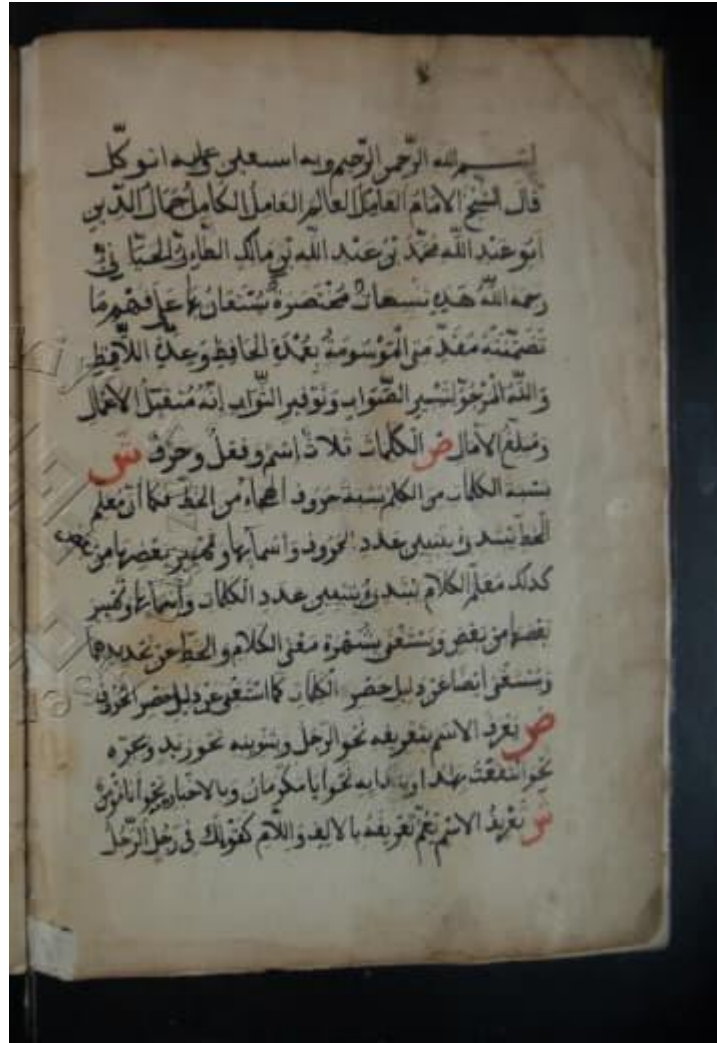 بسم الله الرحمن الرحيم وبه استعين وعليه اتوكل
قال الشيخ الامام الفاضل العالم العامل الكامل جمال الدين
ابو عبد الله محمد بن عبد الله بن مالك الطائي الجياني
رحمه الله هذه تنبيهات مختصرة يستعان بها على فهم ما
تضمنته مقدمتي الموسومة بعمدة الحافظ وعدة اللافظ
والله المرجو لتيسير الصواب وتوفير الثواب انه متقبل الاعمال
ومبلغ الآمال ص الكلمات ثلاث إسم وفعل وحرف ش
نسبة الكلمات من الكلم نسبة حروف الهجاء من الخط فكما أن معلم
الخط يبتدئ بتبيين عدد الحروف واسمآئها وتمييز بعضها من بعض
كذلك معلم الكلام يبتدئ بتبيين عدد الكلمات وأسمائها وتمييز
بعضها من بعض ويستغنى بشهرة معنى الكلام والخط عن تحديدهما
ويستغنى ايضا عن دليل حصر الكلمات كما استغنى عن دليل حصر الحروف
ص يعرف الاسم بتعريفه نحو الرجل وبتنوينه نحو زيد وبجره
نحو انتفعت بهذا وبندايه نحو يا مكرمان وبالاخبار نحو انا مؤمن
ش تعريف الاسم يعم تعريفه بالالف واللام كقولك في رجل الرجل